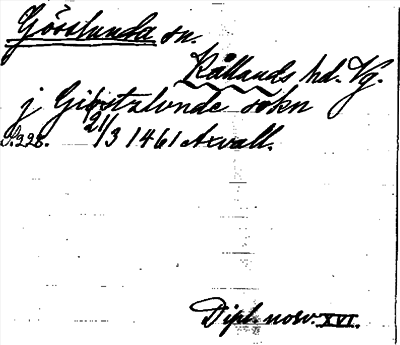 Görslunda sn.
Kållands hd. Vg.
j Giøstzlunde sokn
S. 228. 21/3 1461 Axvall.
Dipl. norv. XVI.